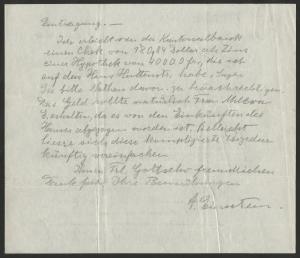 Eintragung.—
Ich erhielt von der Kantonalbank
einen Chek von 980,84 Dollar als Zins
einer Hypothek von 40000 Fr., die ich
auf dem Haus Huttenstr. habe,
Ich bitte Nathan davon zu benachrichtigen
Das Geld sollte natürlich Frau
erhalten, da es von den Einkünften des
Hauses abgezogen worden ist. Vielleicht
liesse sich diese komplizierte Prozedur
künftig vereinfachen
Ihnen Frl. freundlichen
Dank für Ihre Bemühungen
A. Einstein.